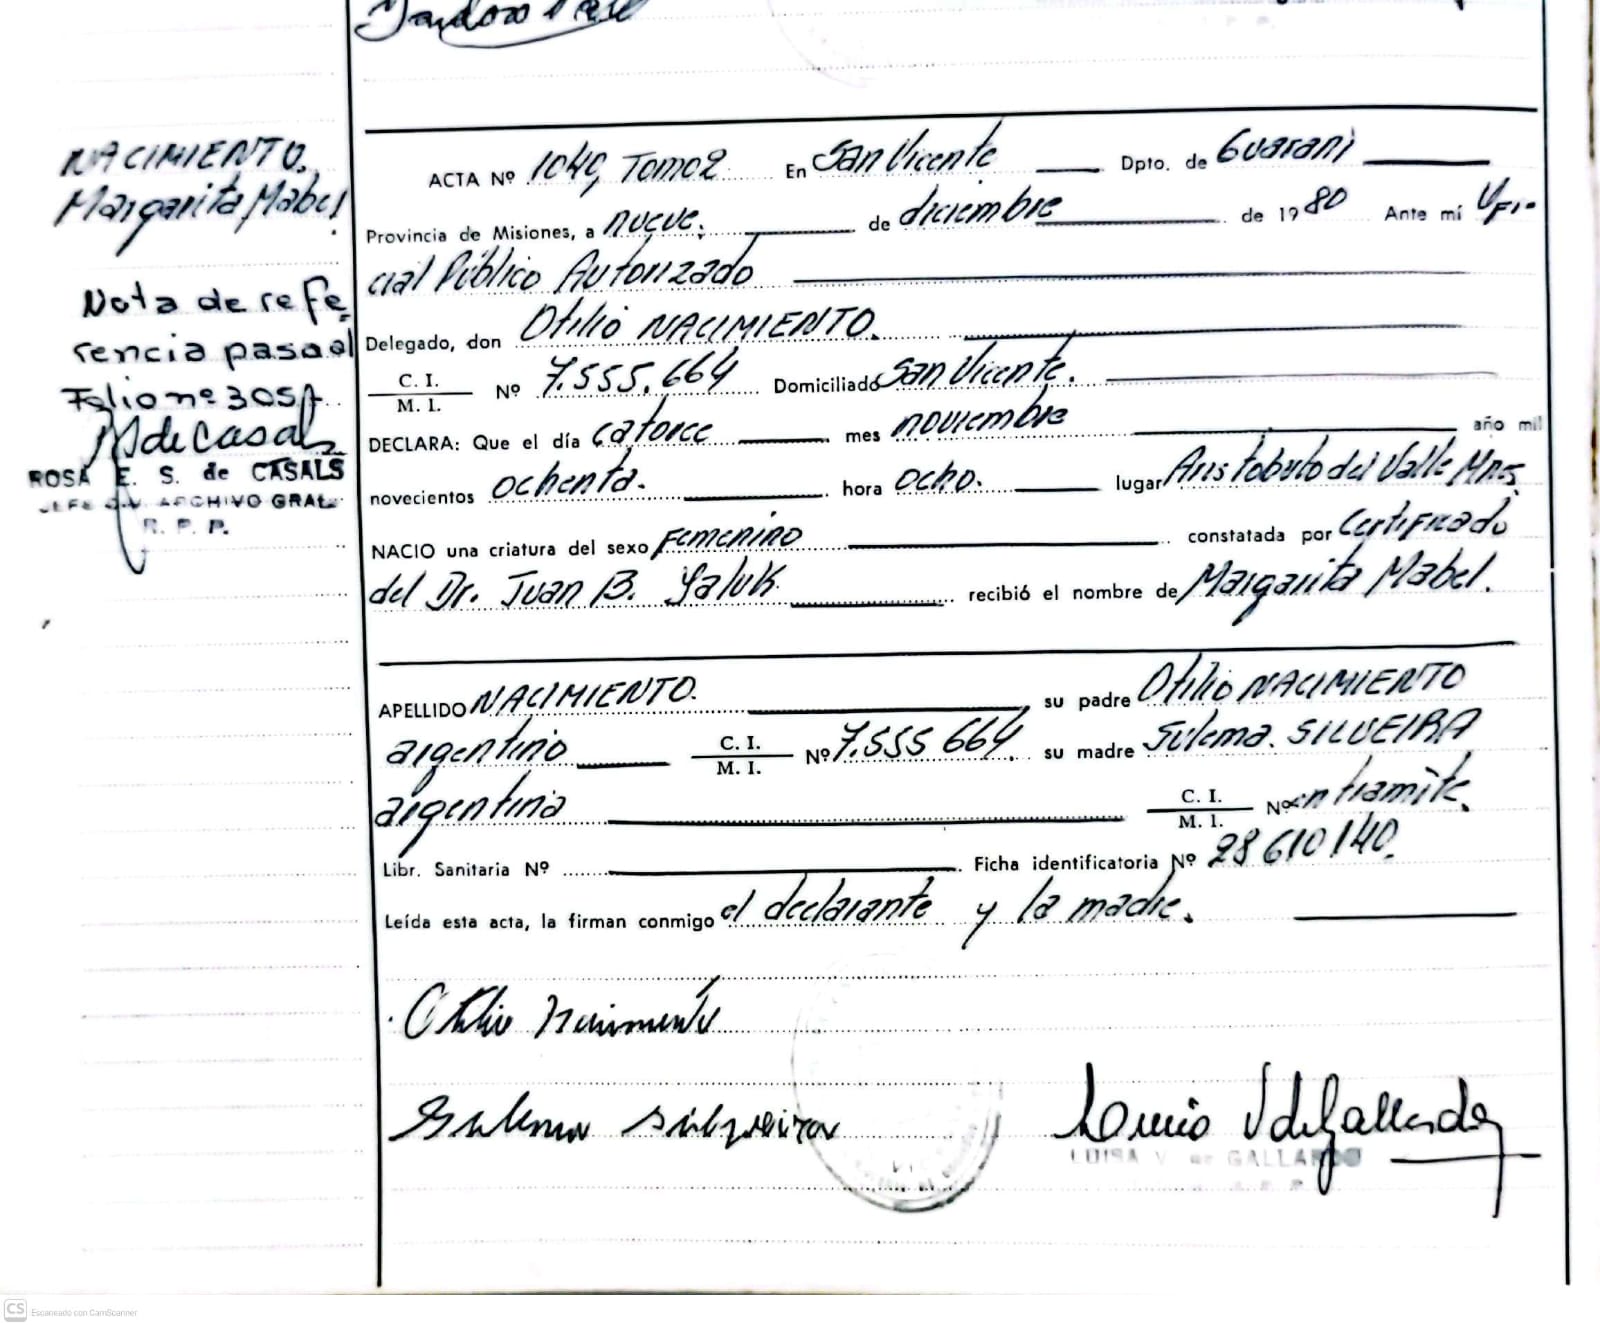 NACIMIENTO,
Margarita Mabel
Nota de refe-
rencia pasa al
Folio nº 305
ROSA E. S. de CASALS
JEFE DIV. ARCHIVO GRAL.
R. P. P.
ACTA Nº 1049, Tomo 2 En San Vicente Dpto. de Guaraní
Provincia de Misiones, a nueve. de diciembre de 1980 Ante mí Ofi-
cial Público Autorizado
Delegado, don Otilio NACIMIENTO.
C. I.
M. I. Nº 7.555.664 Domiciliado San Vicente.
DECLARA: Que el día catorce mes noviembre año mil
novecientos ochenta. hora ocho. lugar Aristobulo del Valle Mnes
NACIO una criatura del sexo Femenino constatada por Certificado
del Dr. Juan B. recibió el nombre de Margarita Mabel.
APELLIDO NACIMIENTO. su padre Otilio NACIMIENTO
argentino C. I.
M. I. Nº 7.555 664 su madre Sulema. SILVEIRA
argentina C. I.
M. I. Nº en tramite.
Libr. Sanitaria Nº Ficha identificatoria Nº 28 610 140.
Leída esta acta, la firman conmigo el declarante y la madre.
Otilio Nacimento
LUISA V. de GALLARDO
CS Escaneado con CamScanner